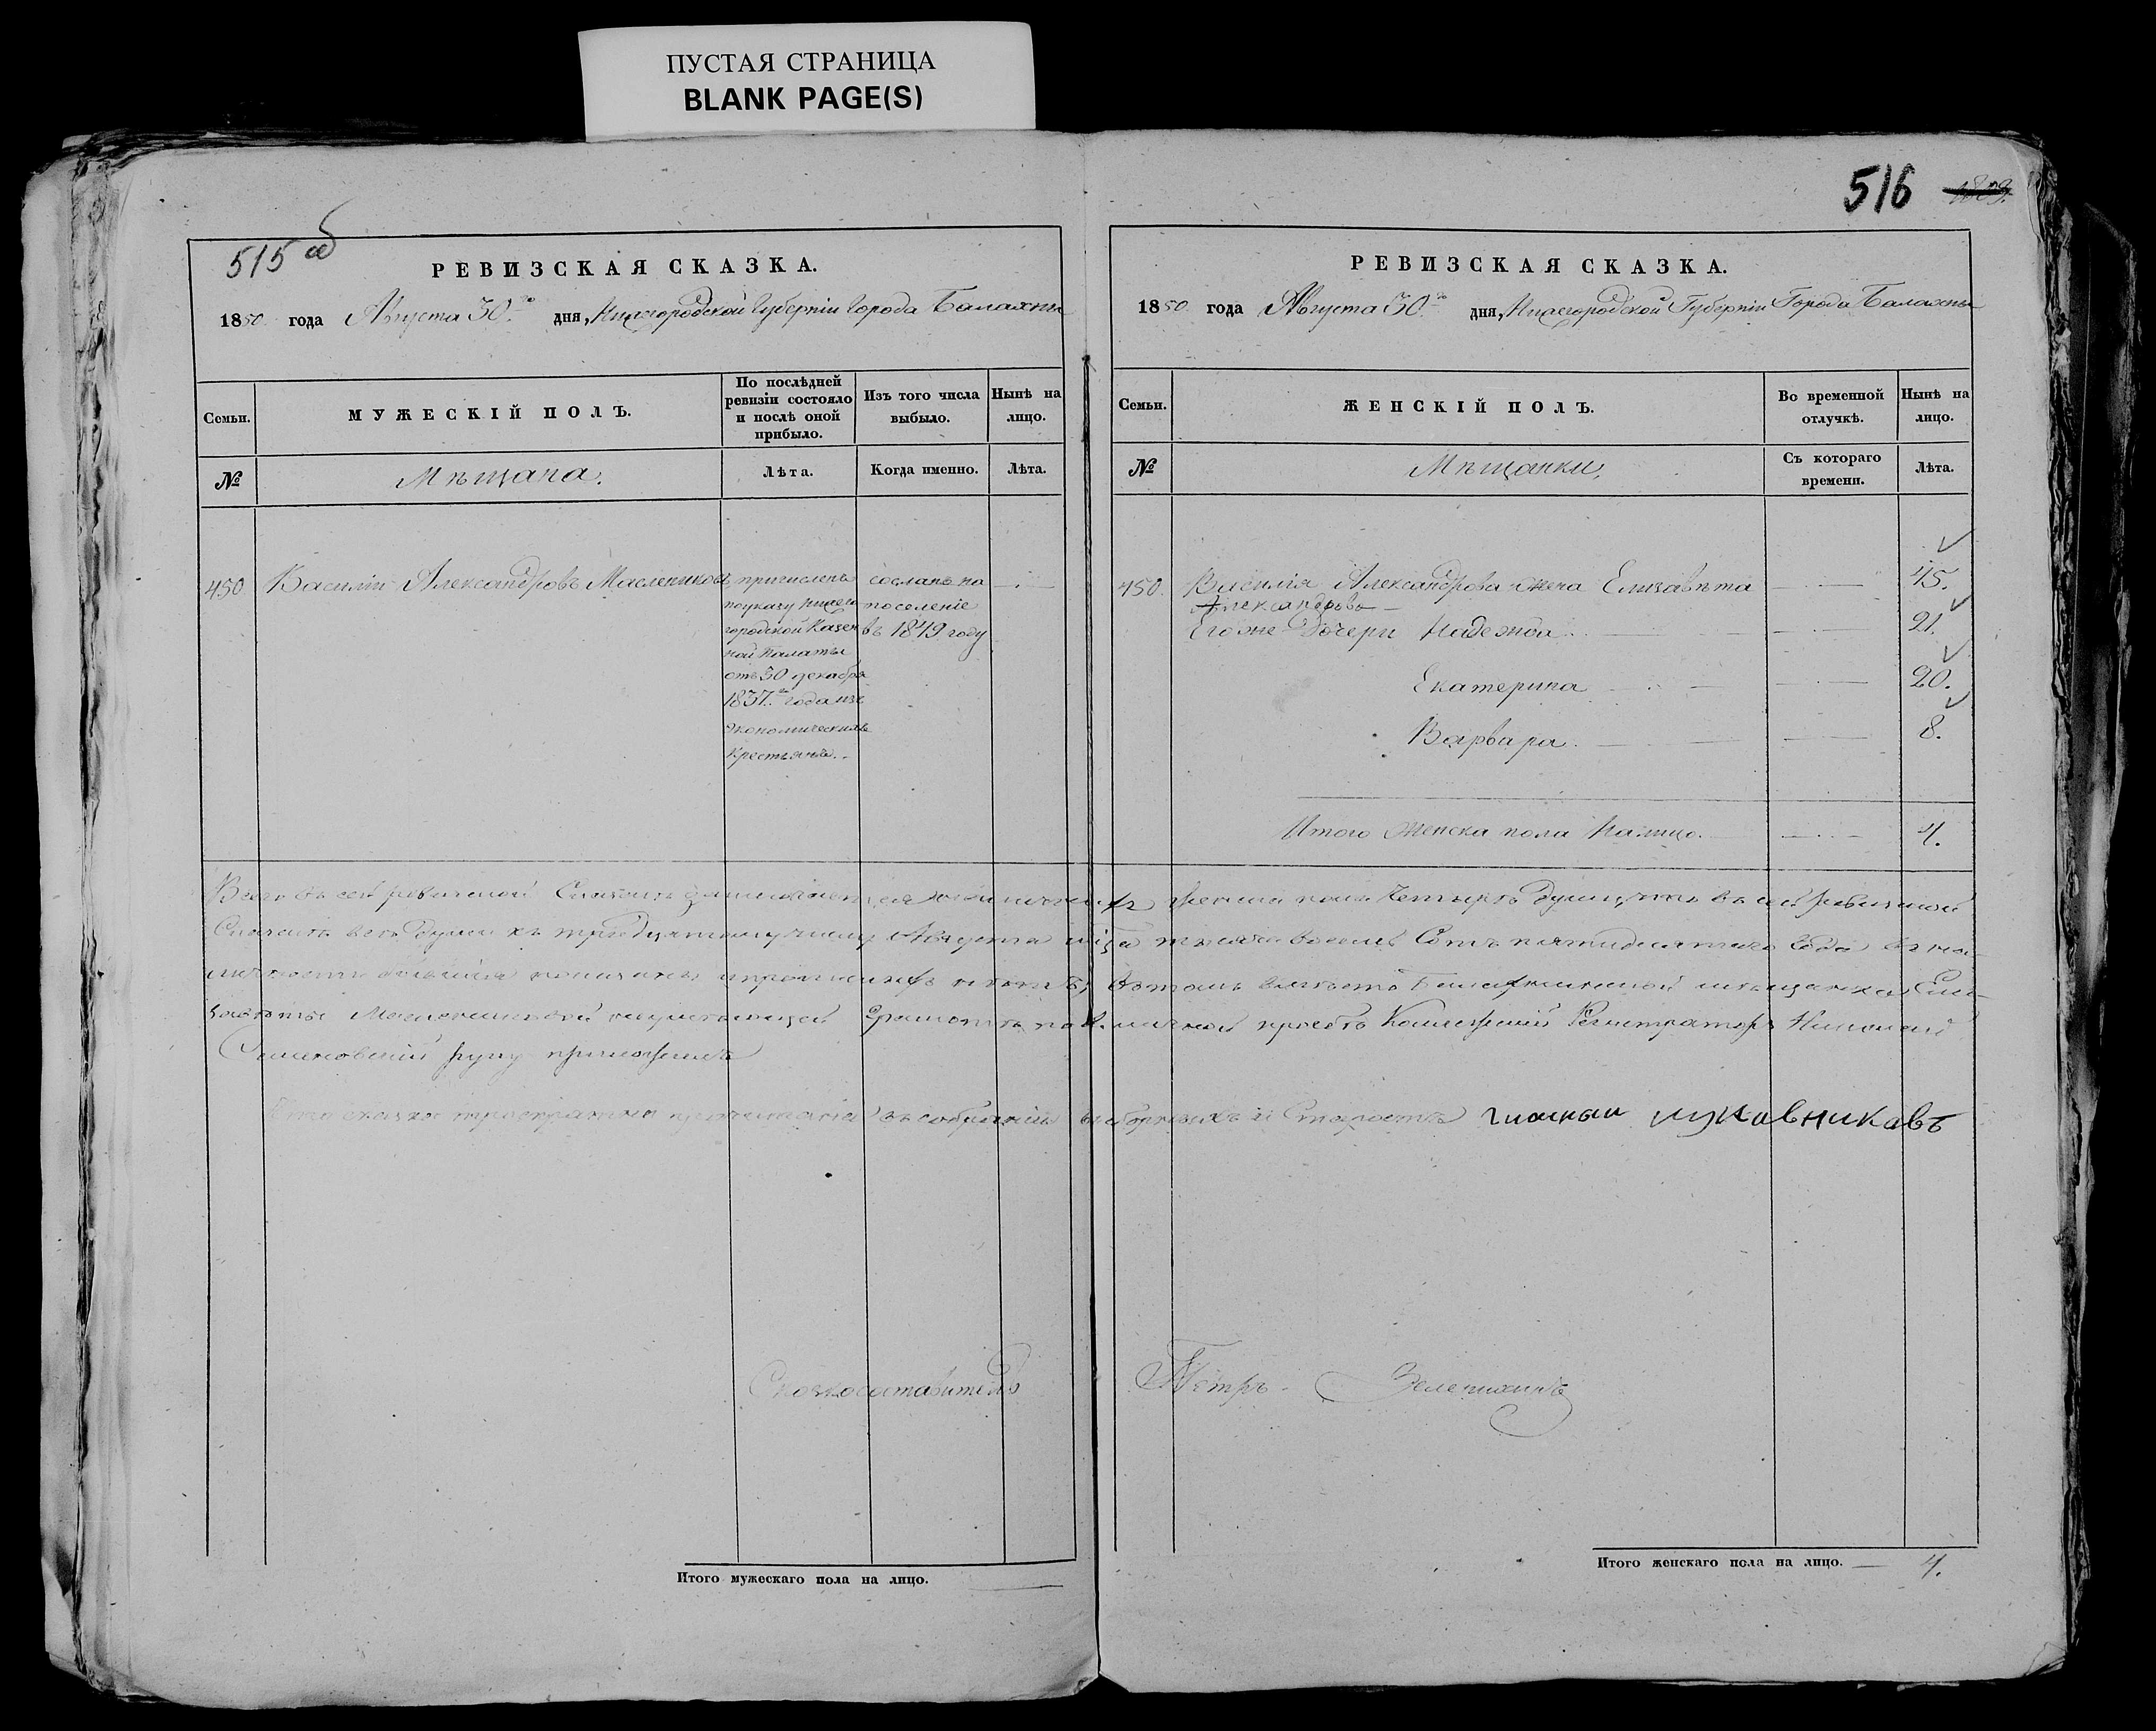 ПУСТАЯ СТРАНИЦА
BLANK PAGE(S)
515 об
РЕВИЗСКАЯ СКАЗКА.
1850 года Августа 30го дня, Нижегородской Губерніи Города Балахны
Семьи.
МУЖЕСКІЙ ПОЛЪ.
По послѣдней
ревизіи состояло
и послѣ оной
прибыло.
Изъ того числа
выбыло.
Нынѣ на
лицо.
№
Мѣщана.
Лѣта.
Когда именно.
Лѣта.
450 Василій Александровъ Маслениковъ
причисленъ
по указу Нижего
городской Казен
ной Палаты
отъ 30 декабря
1837го года изъ
экономическихъ
крестьянъ.
сосланъ на
поселеніе
въ 1849 году
516 1809.
РЕВИЗСКАЯ СКАЗКА.
1850 года Августа 30го дня, Нижегородской Губерніи Города Балахны
Семьи.
ЖЕНСКІЙ ПОЛЪ.
Во временной
отлучкѣ.
Нынѣ на
лицо.
№
Мѣщанки,
Съ котораго
времени.
Лѣта.
450. Василія Александрова жена Елизавѣта 45.
Александрова
Его же дочери Надежда. 21.
Екатерина 20.
Варвара. 8.
Итого женска пола На лицо. 4.
Всего въ сей ревизской Сказкѣ женска пола четыре души, что въ сей ревизской
Сказкѣ всѣ души къ тридцатому числу Августа мѣсяца тысяча восемь Сотъ пятидесятаго года въ на-
въ томъ вмѣсто Балахнинской мѣщанки Ели-
заветы Маслениковой неумѣющей Грамотѣ по личной просьбѣ Колежскій Регистраторъ
руку приложилъ
сказка въ собраніи выборныхъ и Староста лукавникавъ
Скаскосоставитель Петръ Зелепихинъ
Итого мужескаго пола на лицо.
Итого женскаго пола на лицо. 4.